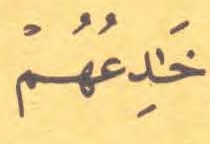 خَٰدِعُهُمْ